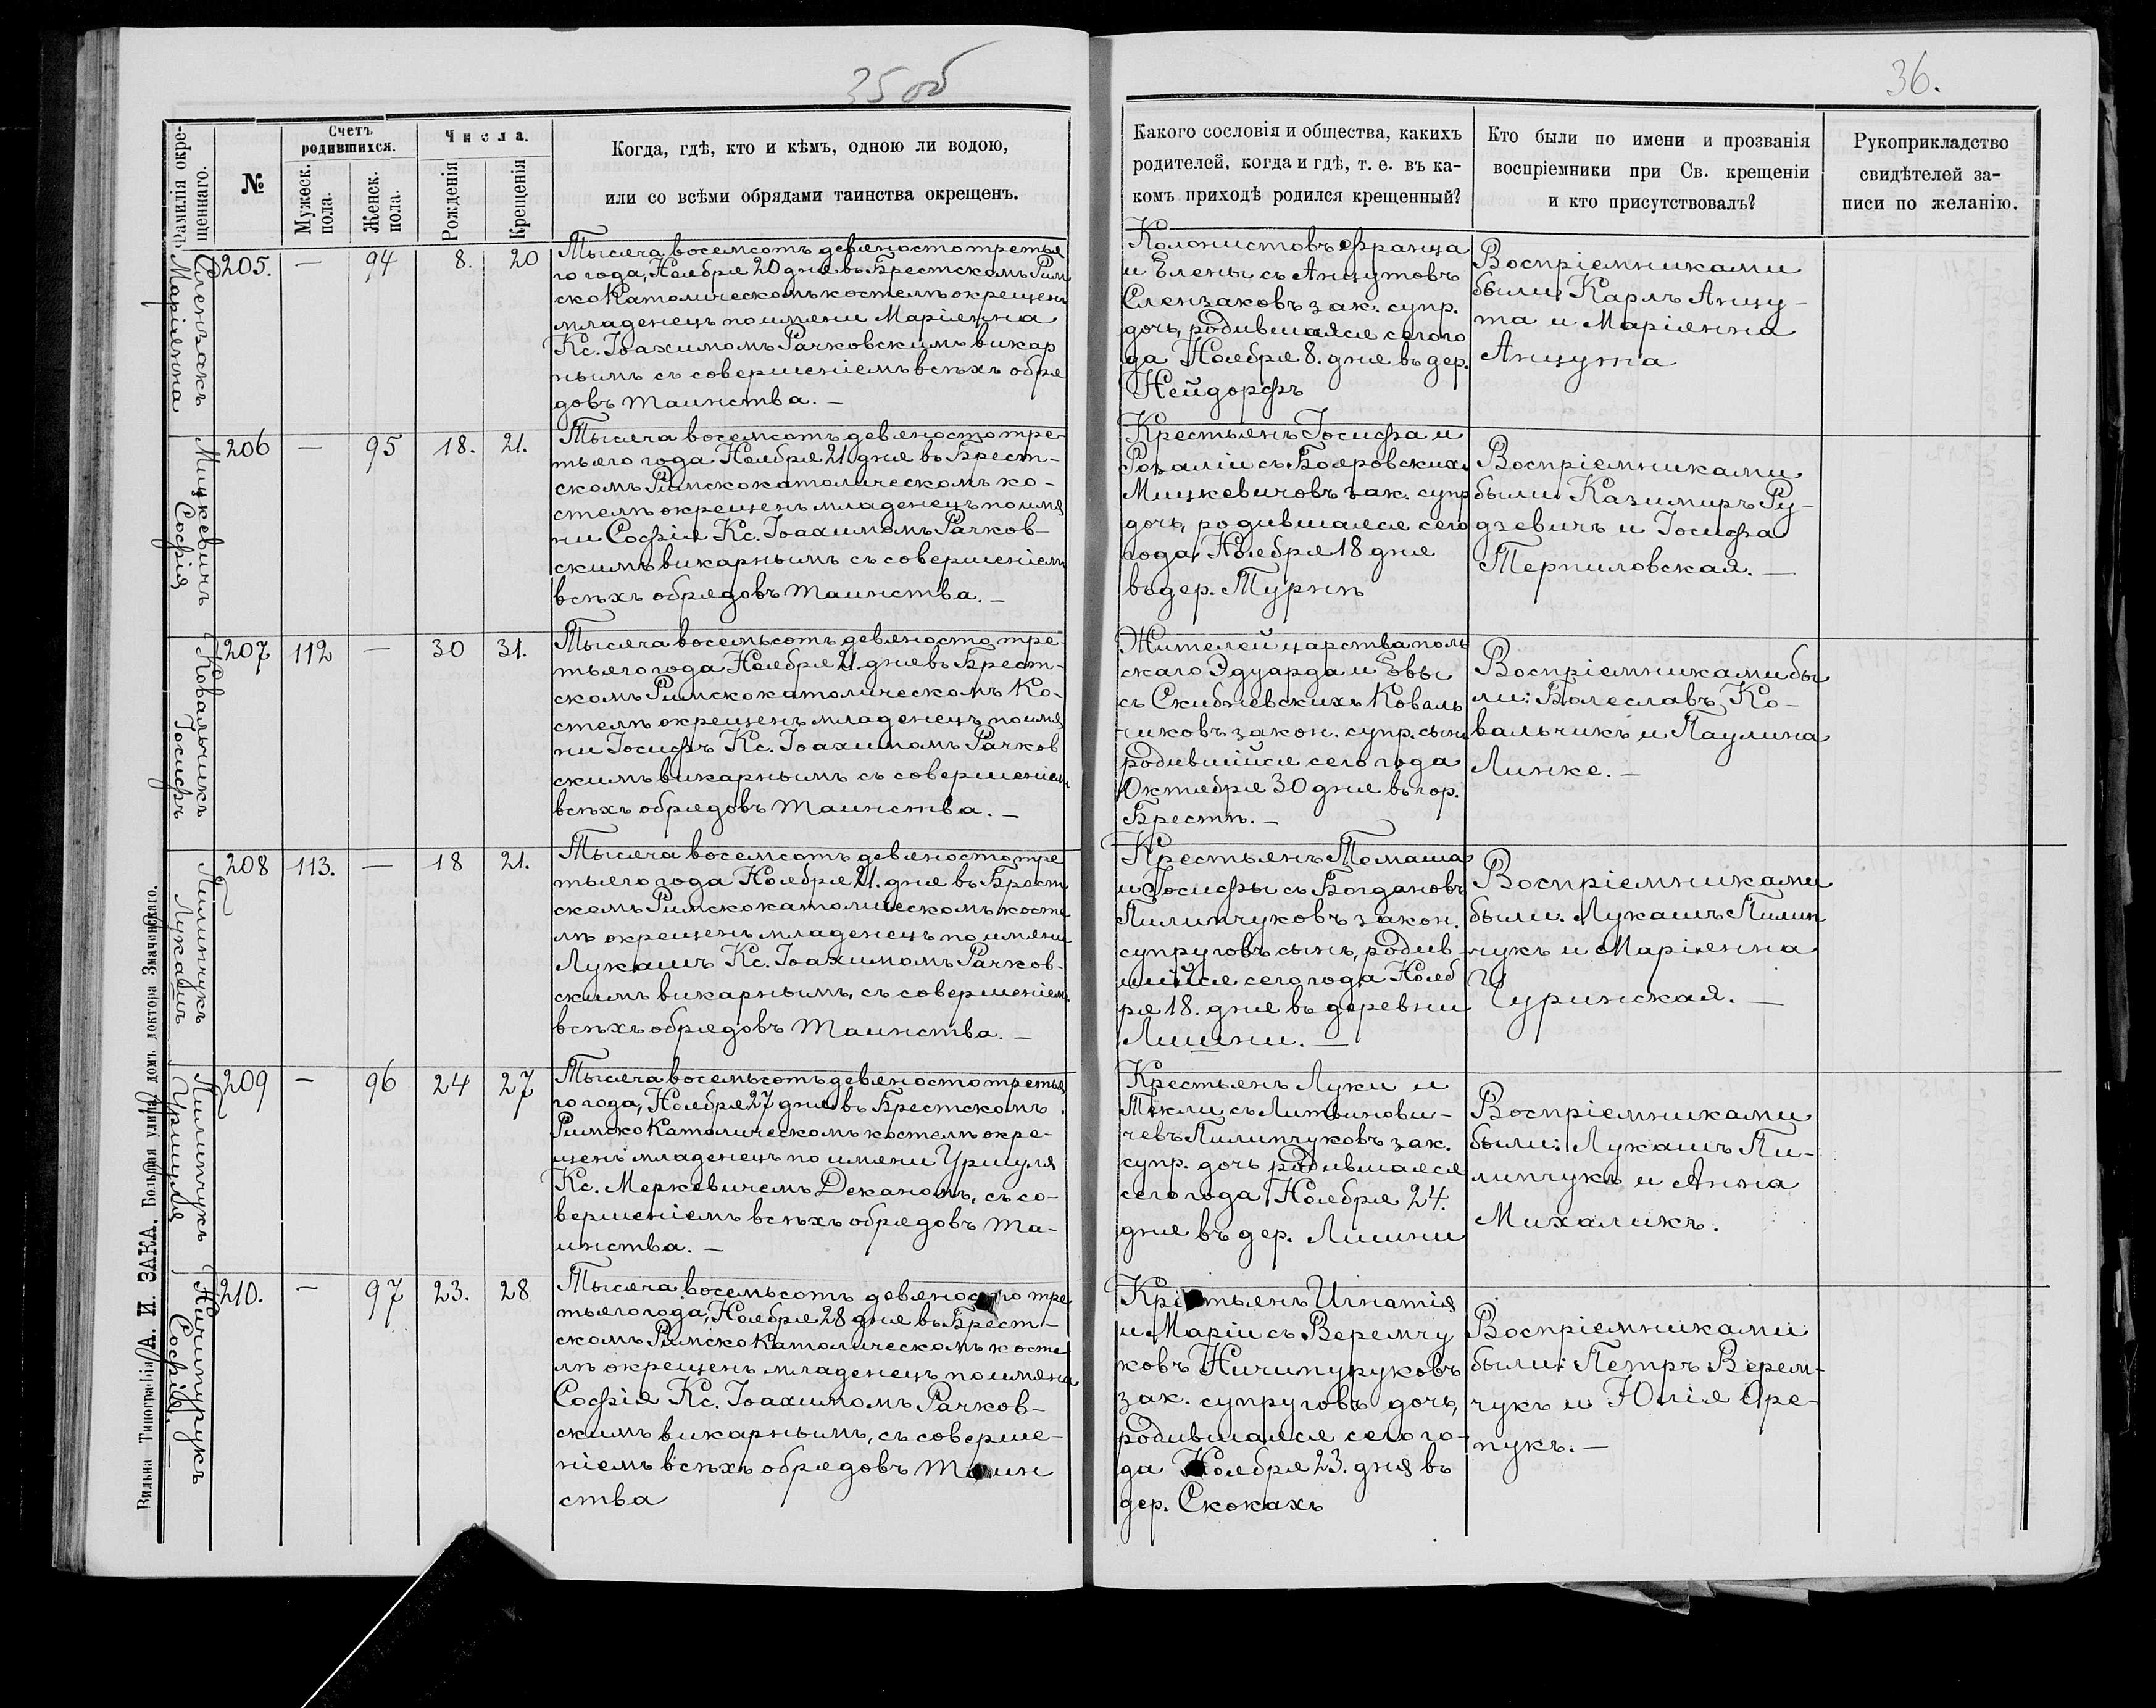 35 об
36.
Фамилія окре-
щеннаго.
№
Счетъ
родившихся.
Мужеск.
пола.
Женск.
пола.
Числа.
Рожденія
Крещенія
Когда, гдѣ, кто и кѣмъ, одною ли водою,
или со всѣми обрядами таинства окрещенъ.
Какого сословія и общества, какихъ
родителей, когда и гдѣ, т. е. въ ка-
комъ приходѣ родился крещенный?
Кто были по имени и прозванія
воспріемники при Св. крещеніи
и кто присутствовалъ?
Рукоприкладство
свидѣтелей за-
писи по желанію.
Слензакъ
Маріянна
205. — 94 8. 20
Тысяча восемсотъ девяносто третья
го года, Ноября 20 дня въ Брестскомъ Рим
ско Католическомъ костелѣ окрещенъ
младенецъ по имени Маріянна
Кс. Іоахимомъ Рачковскимъ викар
нымъ съ совершеніемъ всѣхъ обря
довъ таинства. —
Колонистовъ Франца
и Елены съ Анцутовъ
Слензаковъ зак. супр.
дочь, родившаяся сего го
да Ноября 8. дня въ дер.
Нейдорфъ
Воспріемниками
были: Карлъ Анцу-
та и Маріянна
Анцута
Мицкевичъ
Софія
206 — 95 18. 21.
Тысяча восемсотъ девяносто тре-
тьяго года Ноября 21 дня въ Брест-
скомъ Римскокатолическомъ ко-
стелѣ окрещенъ младенецъ по имя
ни Софія Кс. Іоахимомъ Рачков-
скимъ викарнымъ съ совершеніемъ
всѣхъ обрядовъ таинства. —
Крестьянъ Іосифа и
Розаліи съ Бояровскихъ
Мицкевичовъ зак. супр
дочь, родившаяся сего
года Ноября 18 дня
въ дер. Турнѣ
Воспріемниками
были Казимиръ Ру-
дзевичъ и Іосифа
Терпиловская. —
Ковальчикъ
Іосифъ
207 112 — 30 31.
Тысяча восемьсотъ девяносто тре-
тьяго года Ноября 21 дня въ Брест-
скомъ Римскокатолическомъ Ко-
стелѣ окрещенъ младенецъ по имя
ни Іосифъ Кс. Іоахимомъ Рачков
скимъ викарнымъ съ совершеніемъ
всѣхъ обрядовъ таинства. —
Жителей царства поль
скаго Эдуарда и Евы
съ Скибневскихъ Коваль
чиковъ закон. супр. сынъ
родившійся сего года
Октября 30 дня въ гор.
Брестѣ. —
Воспріемниками бы
ли: Болеславъ Ко-
вальчикъ и Паулина
Линке. —
Пилипчукъ
Лукашъ
208 113. — 18 21.
Тысяча восемсотъ девяносто тре
тьяго года Ноября 21. дня въ Брест
скомъ Римскокатолическомъ косте
лѣ окрещенъ младенецъ по имени
Лукашъ Кс. Іоахимомъ Рачков-
скимъ викарнымъ, съ совершеніемъ
всѣхъ обрядовъ таинства. —
Крестьянъ Томаша
и Іосифы съ Богдановъ
Пилипчуковъ закон.
супруговъ сынъ, родив-
шійся сего года Нояб
ря 18. дня въ деревни
Лишни. —
Воспріемниками
были: Лукашъ Пилип
чукъ и Маріянна
Чуринская. —
Пилипчукъ
Уршуля
209 — 96 24 27
Тысяча восемьсотъ девяносто третья
го года, Ноября 27 дня въ Брестскомъ
Римско Католическомъ костелѣ окре-
щенъ младенецъ по имени Уршуля
Кс. Меркевичемъ Деканомъ, съ со-
вершеніемъ всѣхъ обрядовъ та-
инства. —
Крестьянъ Луки и
Текли съ Литвинови-
чевъ Пилипчуковъ зак.
супр. дочь родившаяся
сего года, Ноября 24.
дня въ дер. Лишни
Воспріемниками
были: Лукашъ Пи-
липчукъ и Анна
Михаликъ.
Ничипурукъ
Софія. —
210. — 97 23. 28
Тысяча восемьсотъ девяносто тре
тьяго года, Ноября 28 дня въ Брест-
скомъ Римско Католическомъ косте
лѣ окрещенъ младенецъ по имени
Софія Кс. Іоахимомъ Рачков-
скимъ викарнымъ, съ соверше-
ніемъ всѣхъ обрядовъ таин
ства
Крестьянъ Игнатія
и Маріи съ Веремчу
ковъ Ничипуруковъ
зак. супруговъ дочь,
родившаяся сего го-
да Ноября 23. дня въ
дер. Скокахъ
Воспріемниками
были: Петръ Верем-
чукъ и Юлія Оре-
пукъ. —
Вильна Типографія А. И. ЗАКА, Большая улица, домъ доктора Змачинскаго.